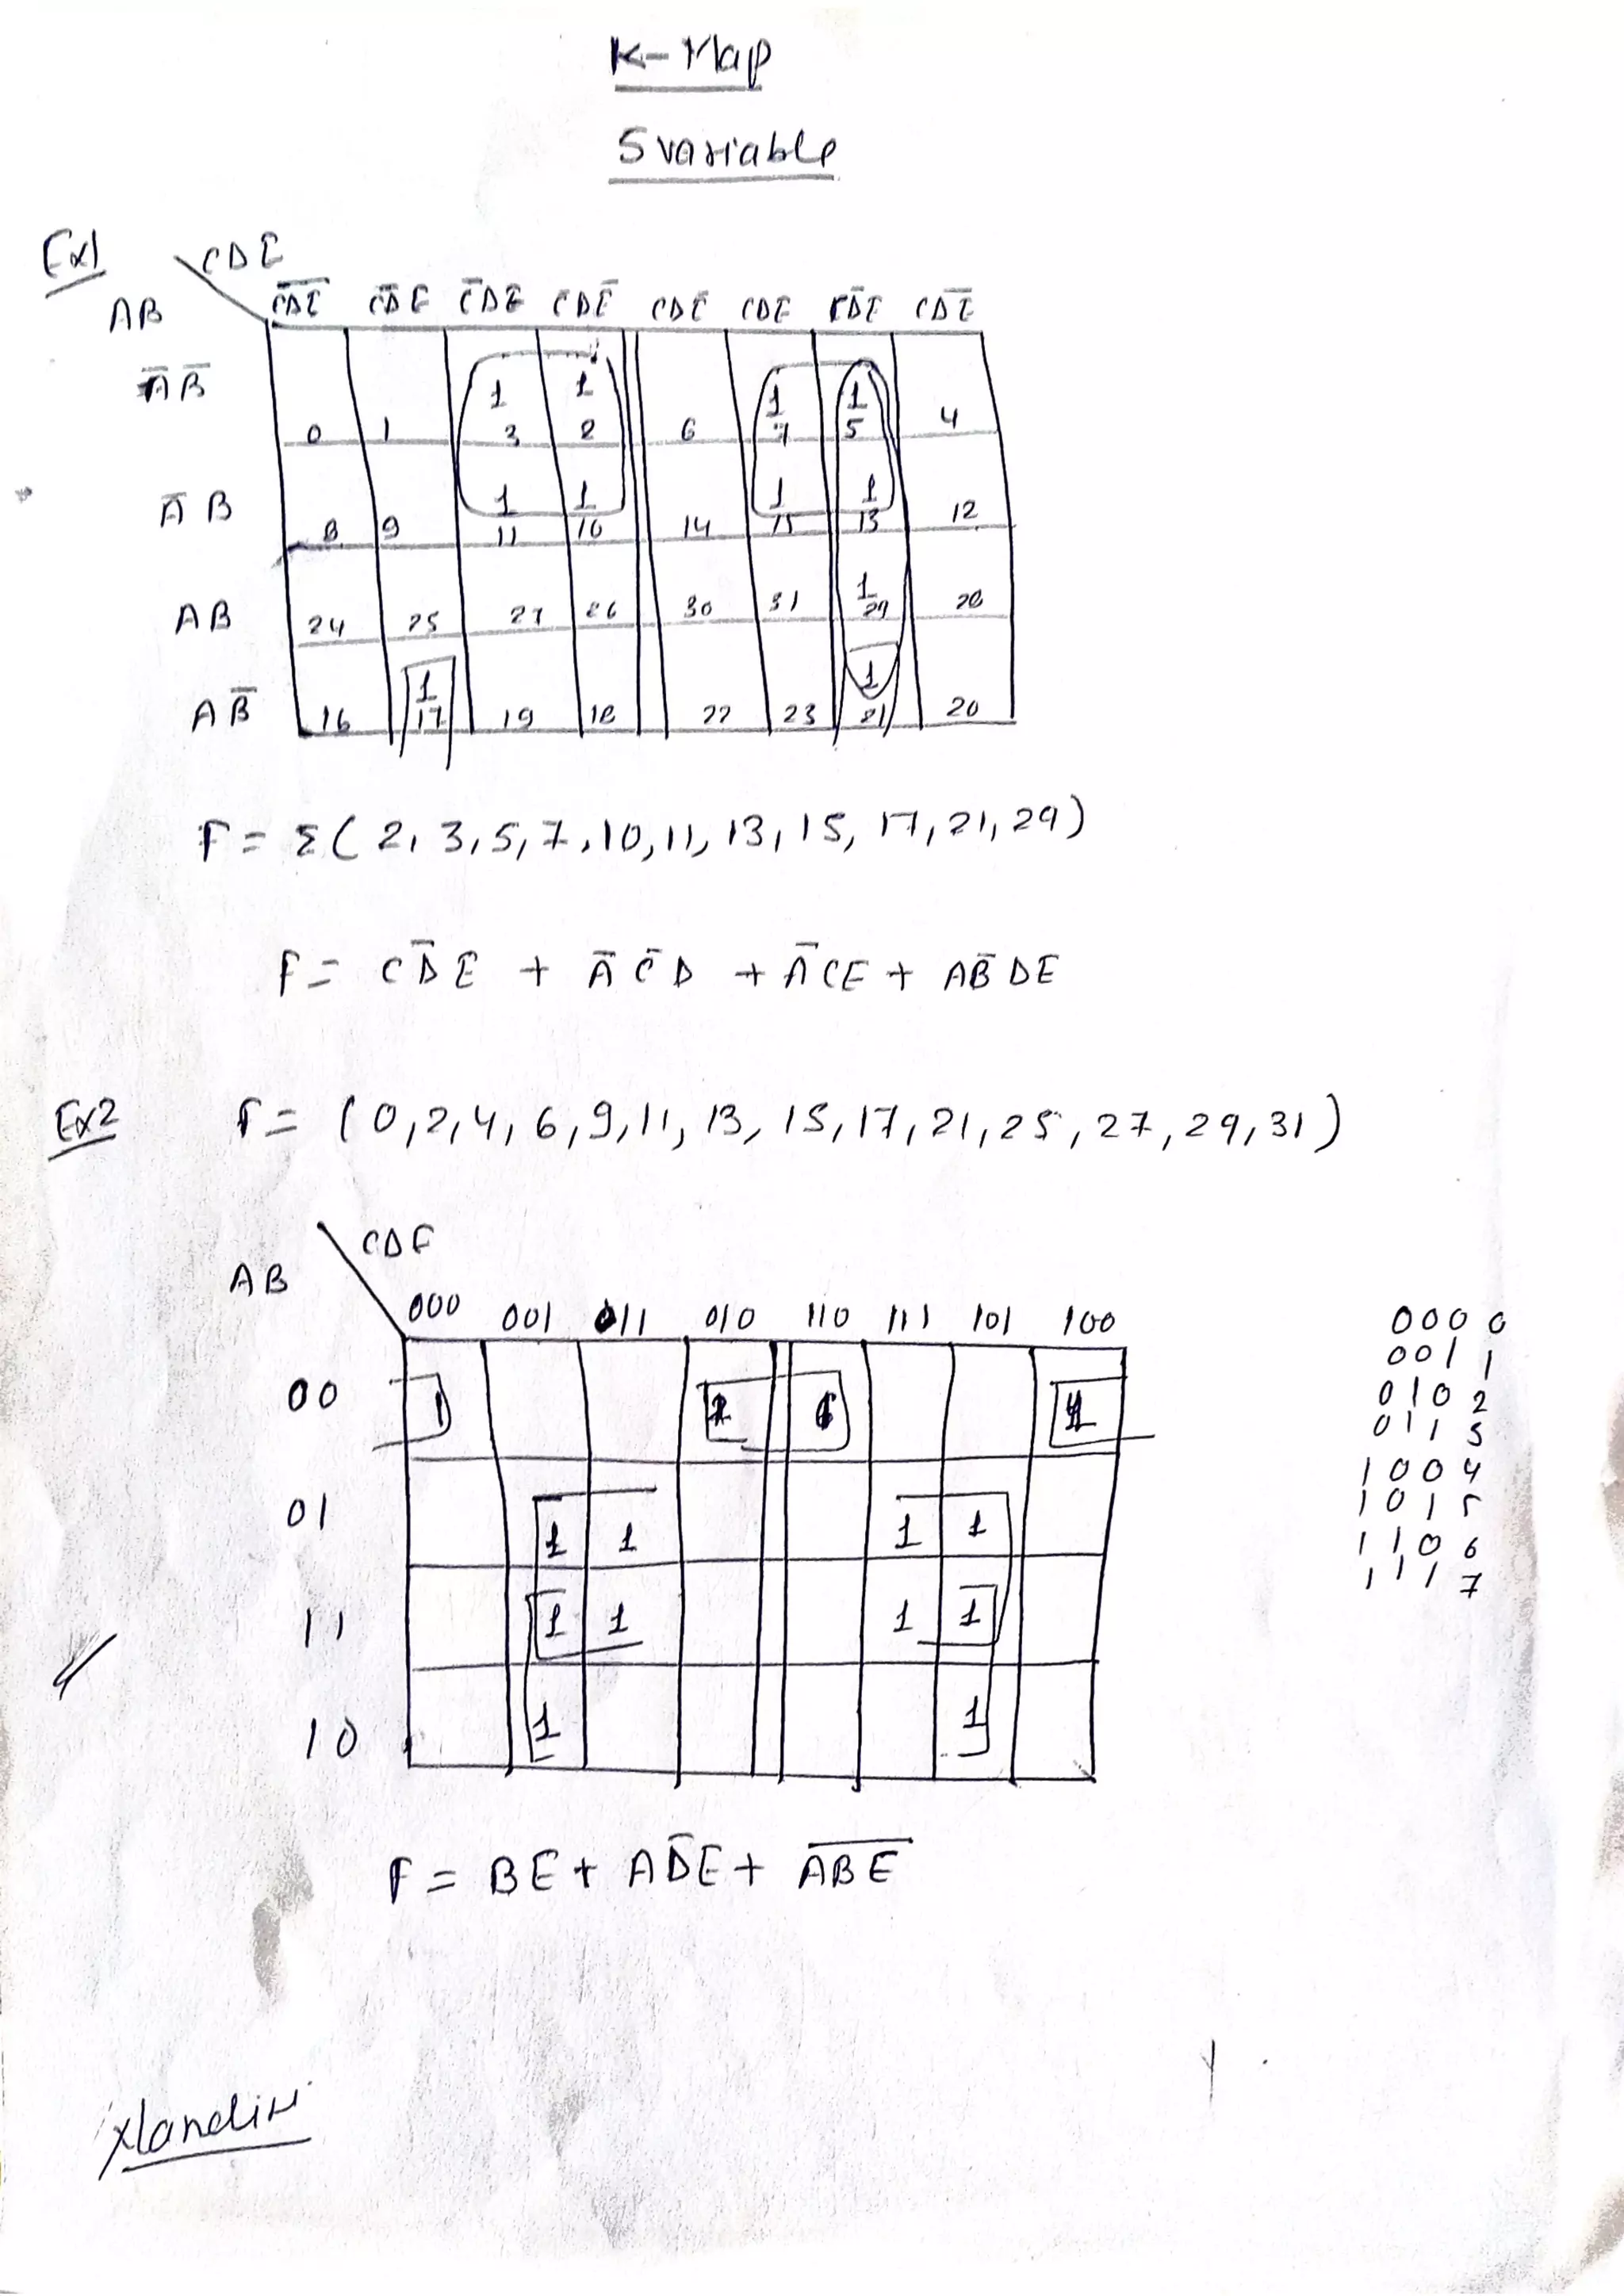 K-Map
5 variable
Ex1
CDE
AB
C̅D̅E̅ C̅D̅E C̅DE C̅DE̅ CDE̅ CDE CD̅E CD̅E̅
A̅B̅
1 1 1 1
0 1 3 2 6 7 5 4
A̅B
1 1 1 1
8 9 11 10 14 15 13 12
AB
1
24 25 27 26 30 31 29 28
AB̅
1 1
16 17 19 18 22 23 21 20
F = Σ( 2, 3, 5, 7, 10, 11, 13, 15, 17, 21, 29)
F = CD̅E + A̅C̅D + A̅CE + AB̅DE
Ex2 F = (0,2,4,6,9,11,13,15,17,21,25,27,29,31)
CDE
AB
000 001 011 010 110 111 101 100
00 1
01 1 1 1 1
11 1 1 1 1
10 1 1
000 0
001 1
010 2
011 3
100 4
101 5
110 6
111 7
F = BE + AD̅E + A̅B̅E̅